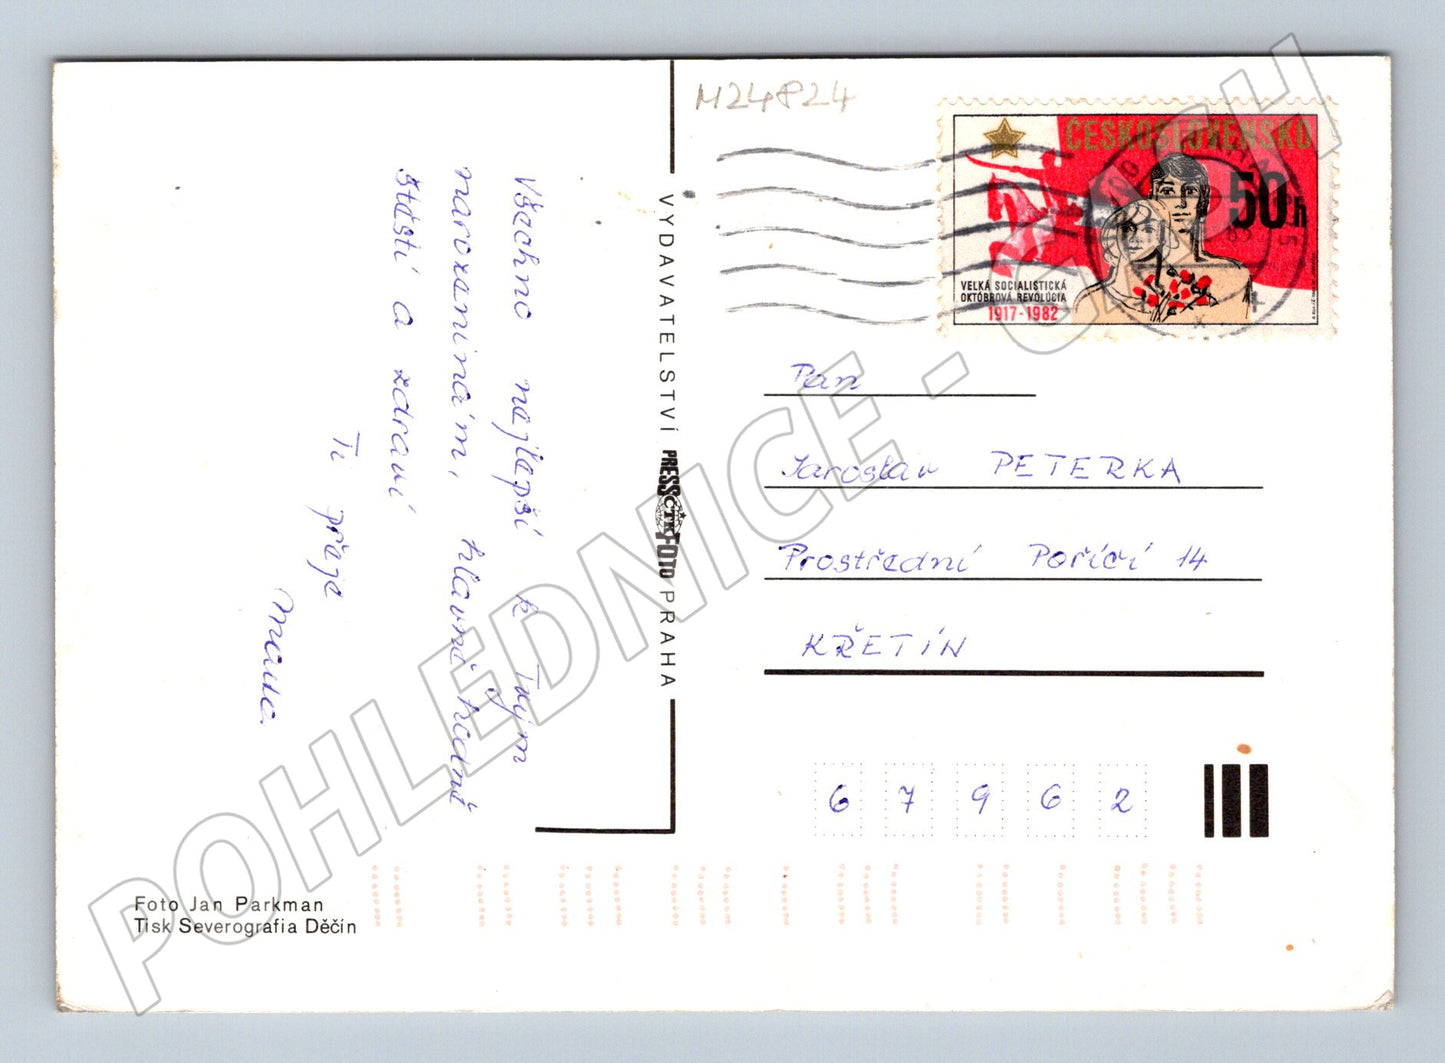 M24824
ČESKOSLOVENSKO
50h
VELKÁ SOCIALISTICKÁ
OKTÓBROVÁ REVOLÚCIA
1917-1982
Všechno nejlepší k Tvým
narozeninám, hlavně hodně
štěstí a zdraví
Ti přeje
VYDAVATELSTVÍ PRESSFOTO PRAHA
ČTK
Pan
Jaroslav PETERKA
Prostřední Poříčí 14
KŘETÍN
6 7 9 6 2
Foto Jan Parkman
Tisk Severografia Děčín
POHLEDNICE - CASH